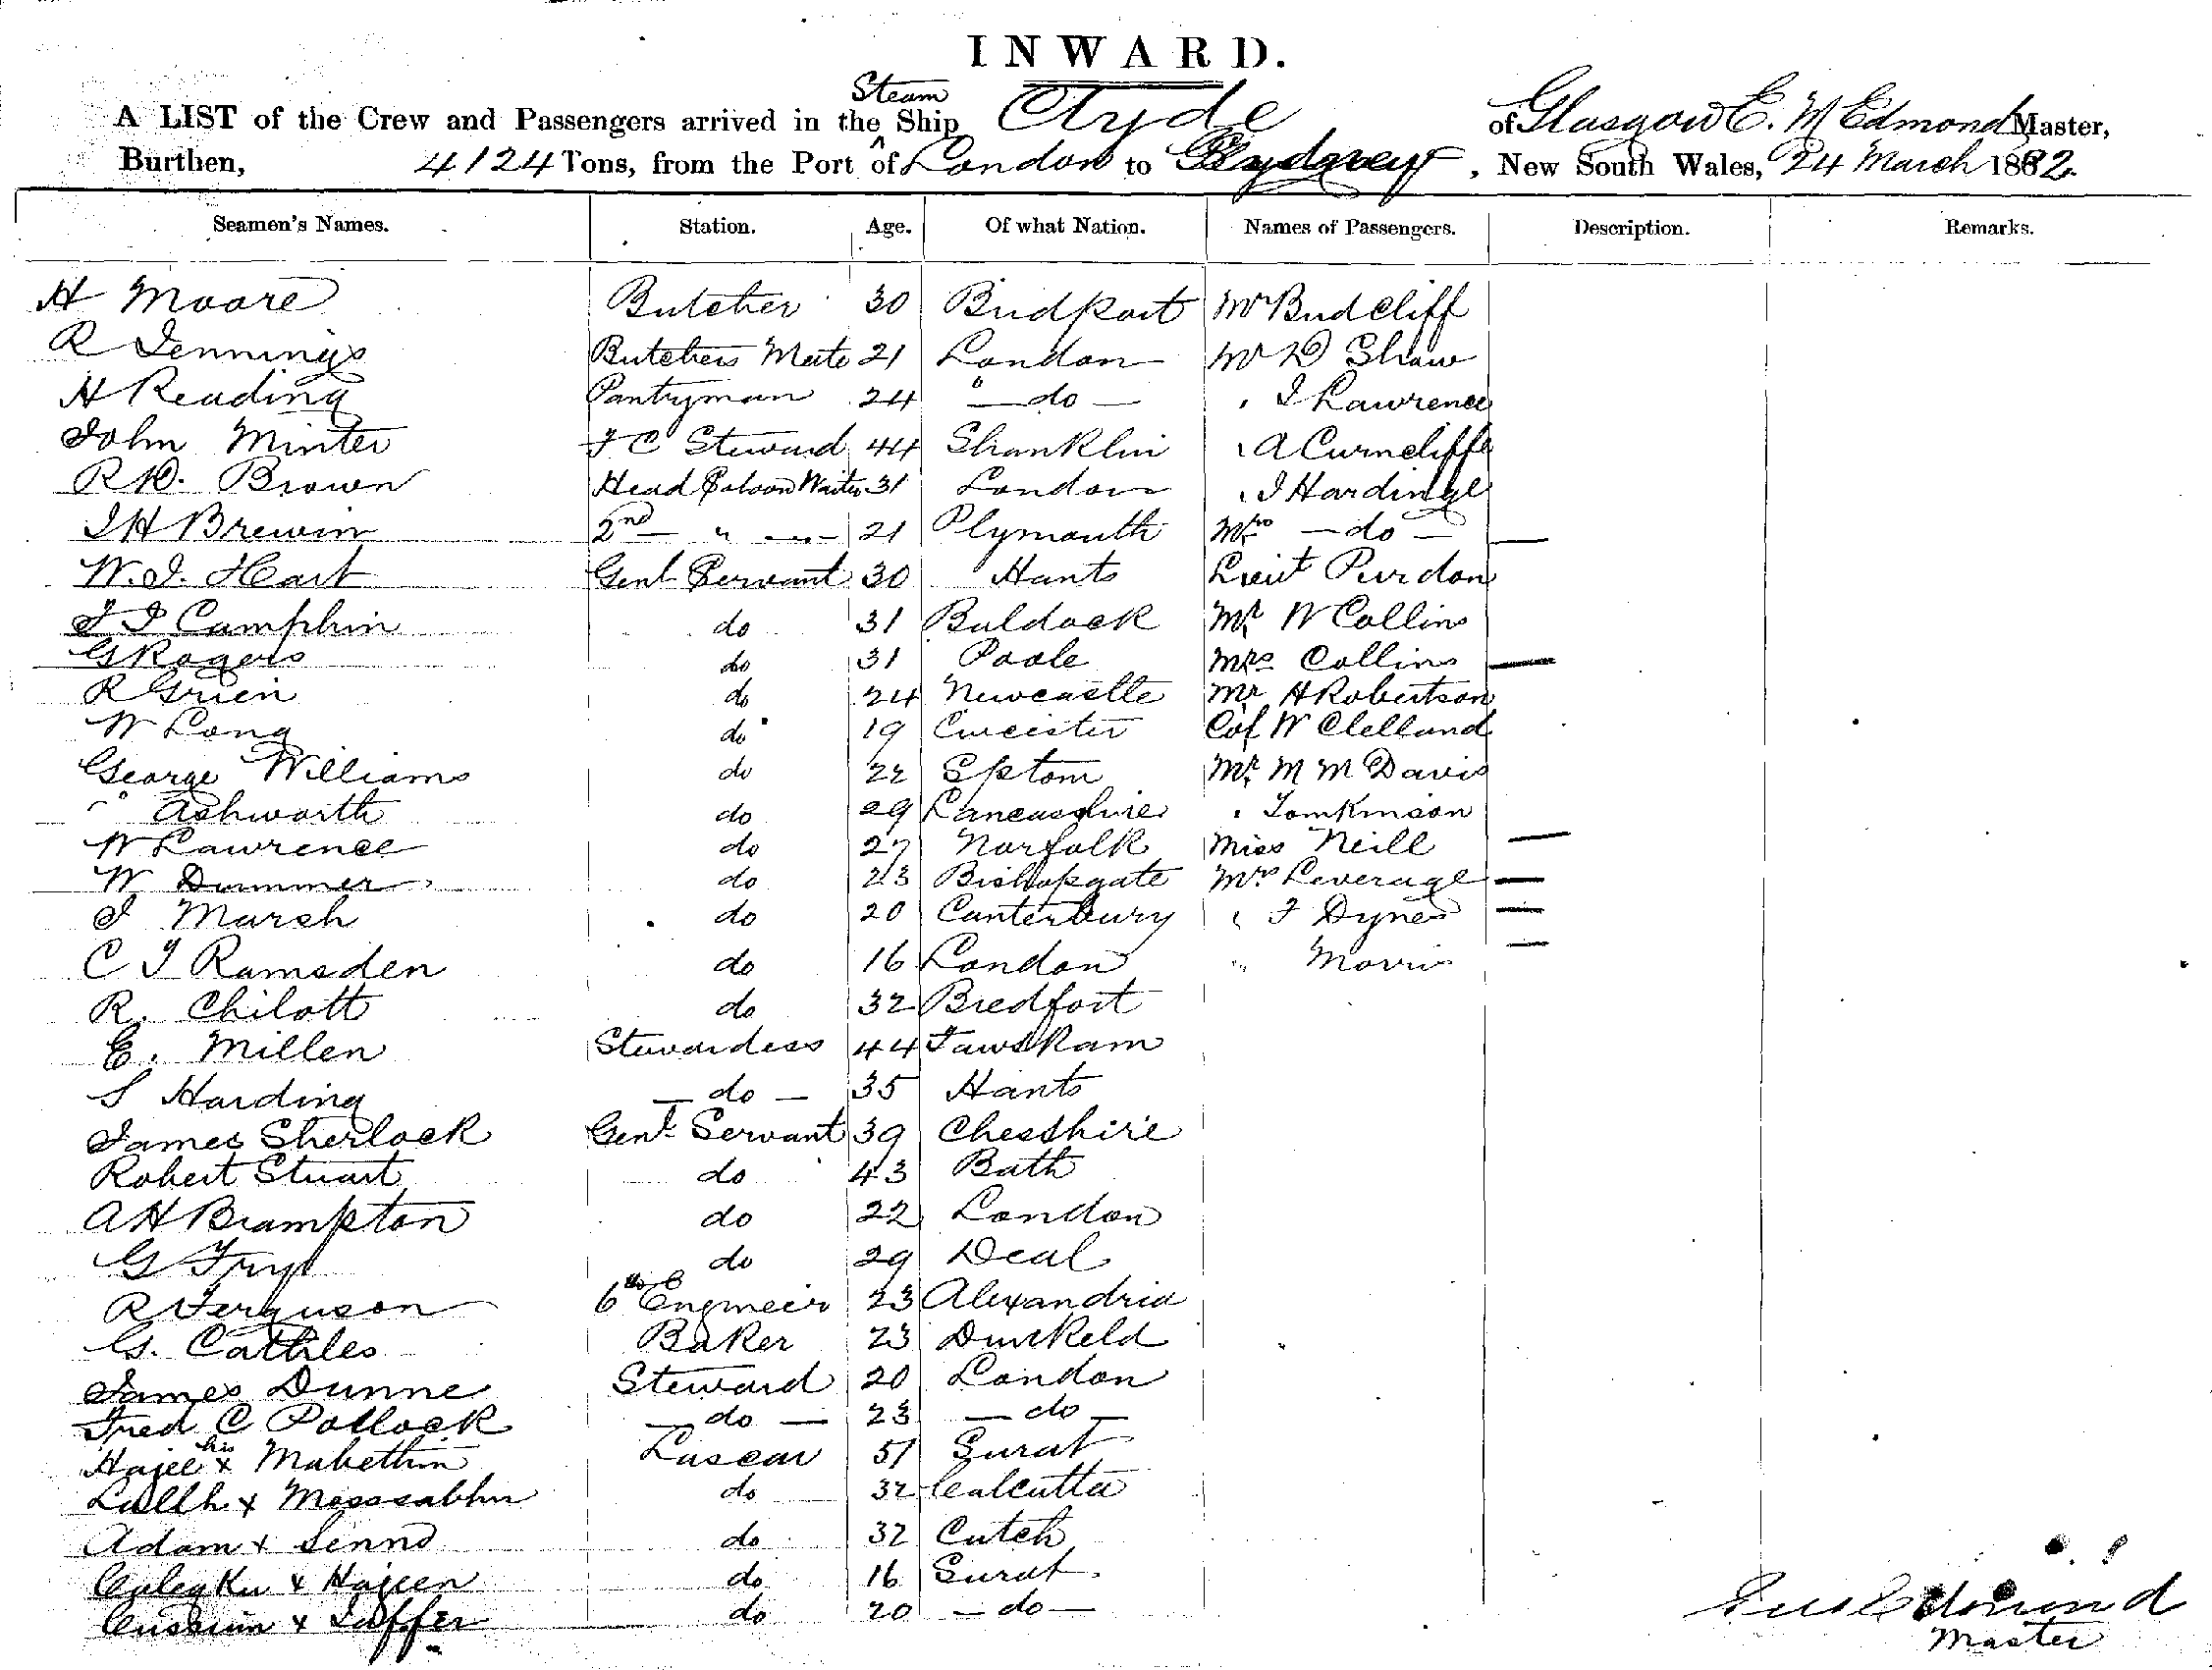 INWARD.
A LIST of the Crew and Passengers arrived in the Steam Ship Clyde of Glasgow E. M Edmond Master,
Burthen, 4124 Tons, from the Port of London to Sydney, New South Wales, 24 March 1882.
Seamen's Names. Station. Age. Of what Nation. Names of Passengers. Description. Remarks.
H Moore Butcher 30 Bridport Mr Budcliff
R Jennings Butchers Mate 21 London Mr D Shaw
H Reading Pantryman 24 " — do — " J Lawrence
John Minter F C Steward 44 Shanklin " A Curncliffe
R D. Brown Head Saloon Waiter 31 London " J Hardinge
J H Brewin 2nd — " — 21 Plymouth Mrs — do —
W. J. Hart Genl Servant 30 Hants Lieut Purdon
J J Camphin do 31 Baldock Mr W Collins
G Rogers do 31 Poole Mrs Collins —
R Grien do 24 Newcastle Mr H Robertson
W Long do 19 Col W Clelland
George Williams do 22 Mr M M Davis
" Ashworth do 29 Lancashire " Tomkinson
W Lawrence do 27 Norfolk Miss Neill —
W Dummer do 23 Bishopgate Mrs Leverage —
J Marsh do 20 Canterbury " F Dynes —
C J Ramsden do 16 London " Morris —
R. Chilott do 32 Bredfort
E. Millen Stewardess 44
S Harding — do — 35 Hants
James Sherlock Genl Servant 39 Chesshire
Robert Stuart do 43 Bath
A H Brampton do 22 London
G Fryd do 29 Deal
R Ferguson 6th Engineer 23 Alexandria
G. Cattiles Baker 23 Dunkeld
James Dunne Steward 20 London
Fred C Pollock — do — 23 — do —
Hajee his x Mahethin Lascar 51 Surat
Lallh x do 32 Calcutta
Adam x Senno do 32 Cutch
x Hajeen do 16 Surat
x Jaffer do 20 — do —
Edmond
Master